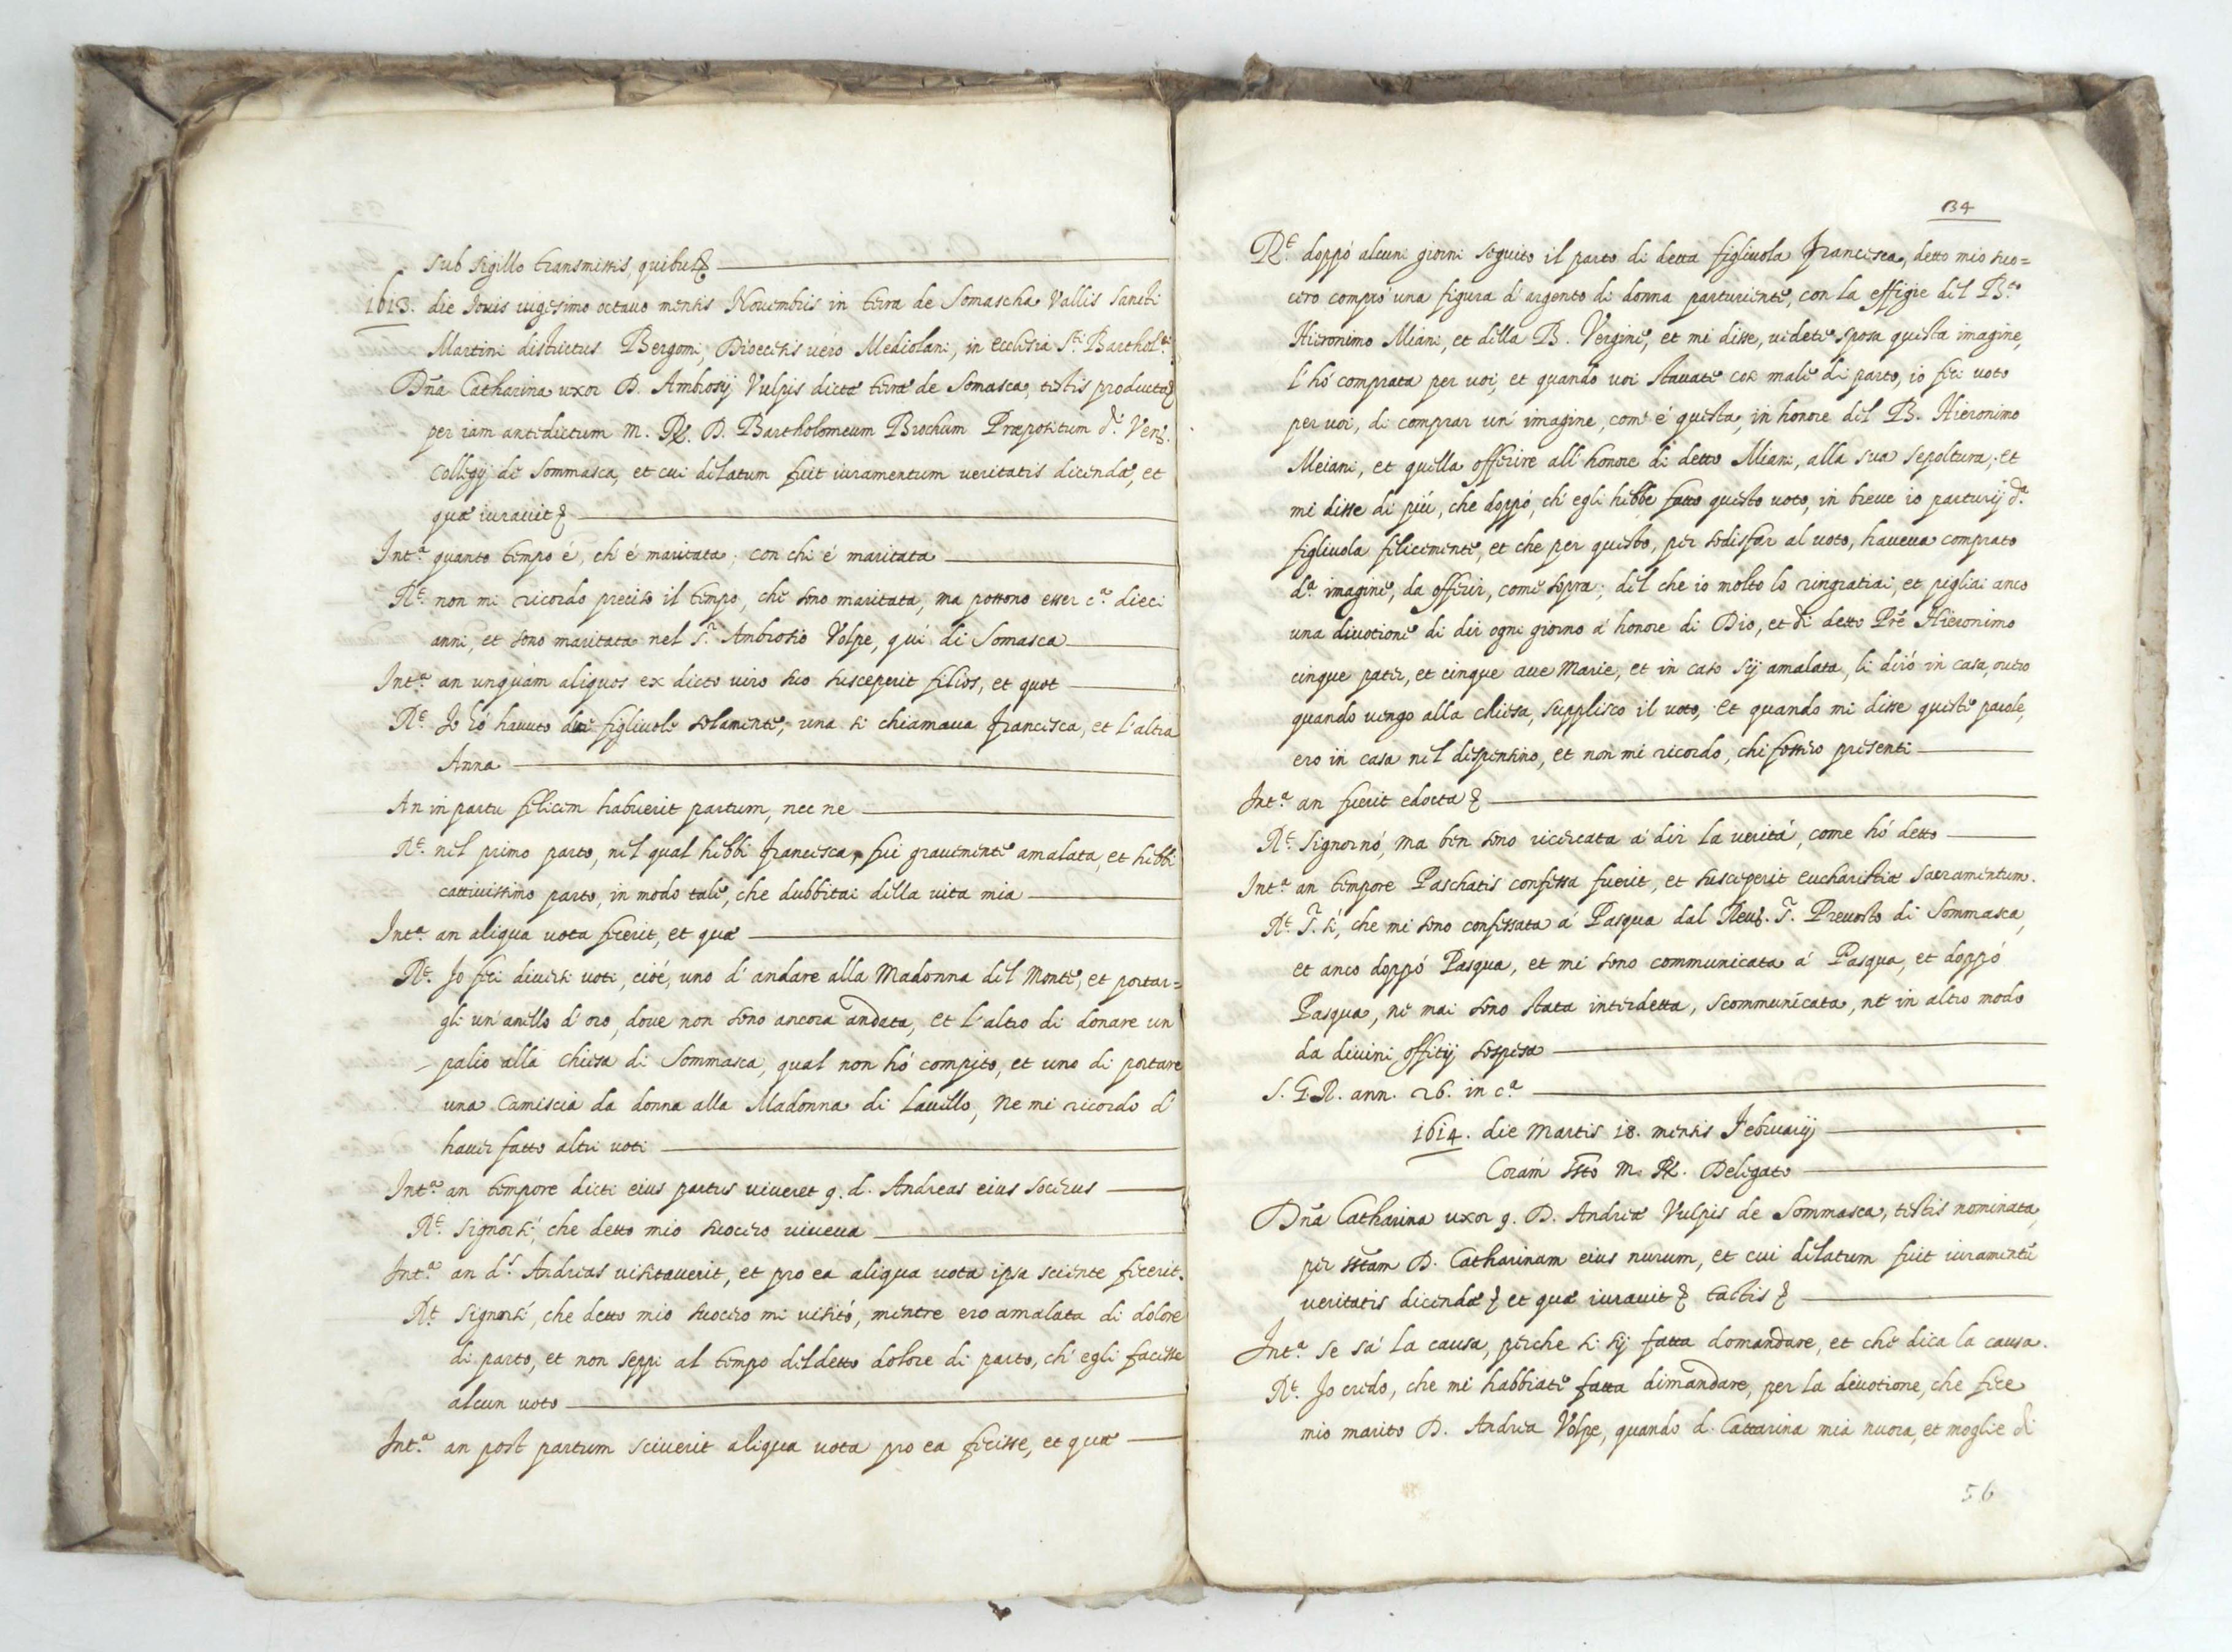 sub sigillo transmissis, quibus &
1613. die Iovis vigesimo octavo mensis Novembris in terra de Somascha Vallis Sancti
Martini districtus Bergomi, Diocesis vero Mediolani, in ecclesia S.ti Barthol.ei
Dña Catharina uxor D. Ambrosij Vulpis dictæ terræ de Somasca, testis producta
per iam antedictum m. R. D. Bartholomeum Brochum Præpositum d.i Ven.
Collegij de Sommasca, et cui delatum fuit iuramentum veritatis dicendæ, et
quæ iuravit &
Int.a quanto tempo é, ch'é maritata; con chi é maritata
R.t non mi ricordo preciso il tempo, che sono maritata, ma possono esser c.a dieci
anni, et sono maritata nel S.r Ambrosio Volpe, quí di Somasca
Int.a an unquàm aliquos ex dicto viro suo susceperit filios, et quot
R.t Io hó havuto due figliuole solamente, una si chiamava Francesca, et l'altra
Anna
An in partu felicem habuerit partum, nec ne
R.t nel primo parto, nel qual hebbi Francesca, fui gravemente amalata, et hebbi
cattivissimo parto, in modo tale, che dubbitai della vita mia
Int.a an aliqua vota fecerit, et quæ
R.t Io feci diversi voti, cioé, uno d'andare alla Madonna del Monte, et portar=
gli un'anello d'oro, dove non sono ancora andata, et l'altro di donare un
palio alla chiesa di Sommasca, qual non hó compito, et uno di portare
una camiscia da donna alla Madonna di Lavello, ne mi ricordo d'
haver fatto altri voti
Int.a an tempore dicti eius partus viveret q. d. Andreas eius socerus
R.t signorsí, che detto mio suocero viveva
Int.a an d.s Andreas visitaverit, et pro ea aliqua vota ipsa sciente fecerit.
R.t signorsí, che detto mio suocero mi visitó, mentre ero amalata di dolore
di parto, et non seppi al tempo del detto dolore di parto, ch'egli facesse
alcun voto
Int.a an post partum sciverit aliqua vota pro ea fecisse, et quæ
134
R.t doppó alcuni giorni seguito il parto di detta figliuola Francesca, detto mio suo=
cero compró una figura d'argento di donna parturiente, con la effigie del B.to
Hieronimo Miani, et della B. Vergine, et mi disse, vedete sposa questa imagine,
l'hó comprata per voi, et quando voi stavate cosi male di parto, io feci voto
per voi, di comprar un'imagine, com'é questa, in honore del B. Hieronimo
Meiani, et quella offerire all'honore di detto Miani, alla sua sepoltura, et
mi disse di piú, che doppó, ch'egli hebbe fatto questo voto, in breve io parturij d.a
figliuola felicemente, et che per questo, per sodisfar al voto, haveva comprato
d.a imagine, da offerir, come sopra; del che io molto lo ringratiai, et pigliai anco
una divotione di dir ogni giorno á honore di Dio, et di detto Prẽ Hieronimo
cinque pater, et cinque ave Marie, et in caso sij amalata, li diró in casa, outro
quando vengo alla chiesa, supplisco il voto, et quando mi disse queste parole,
ero in casa nel dispensino, et non mi ricordo, chi fossero presenti
Int.a an fuerit edocta &
R.t signornó, ma ben sono ricercata á dir la veritá, come hó detto
Int.a an tempore Paschatis confessa fuerit, et susceperit eucharistiæ sacramentum.
R.t S.r sí, che mi sono confessata á Pasqua dal Rev. S.r Prevosto di Sommasca,
et anco doppó Pasqua, et mi sono communicata á Pasqua, et doppó
Pasqua, ne mai sono stata interdetta, scommunicata, ne in altro modo
da divini offitij sospesa
S. G. R. ann. 26. in c.a
1614. die Martis 18. mensis Februarij
Coràm ssto m. R. Delegato
Dña Catharina uxor q. D. Andreæ Vulpis de Sommasca, testis nominata
per sstam D. Catharinam eius nurum, et cui delatum fuit iuramentũ
veritatis dicendæ & et quæ iuravit & tactis &
Int.a se sá la causa, perche si sij fatta domandare, et che dica la causa.
R.t Io credo, che mi habbiate fatta dimandare, per la devotione, che fece
mio marito D. Andrea Volpe, quando d. Cattarina mia nuora, et moglie di
56